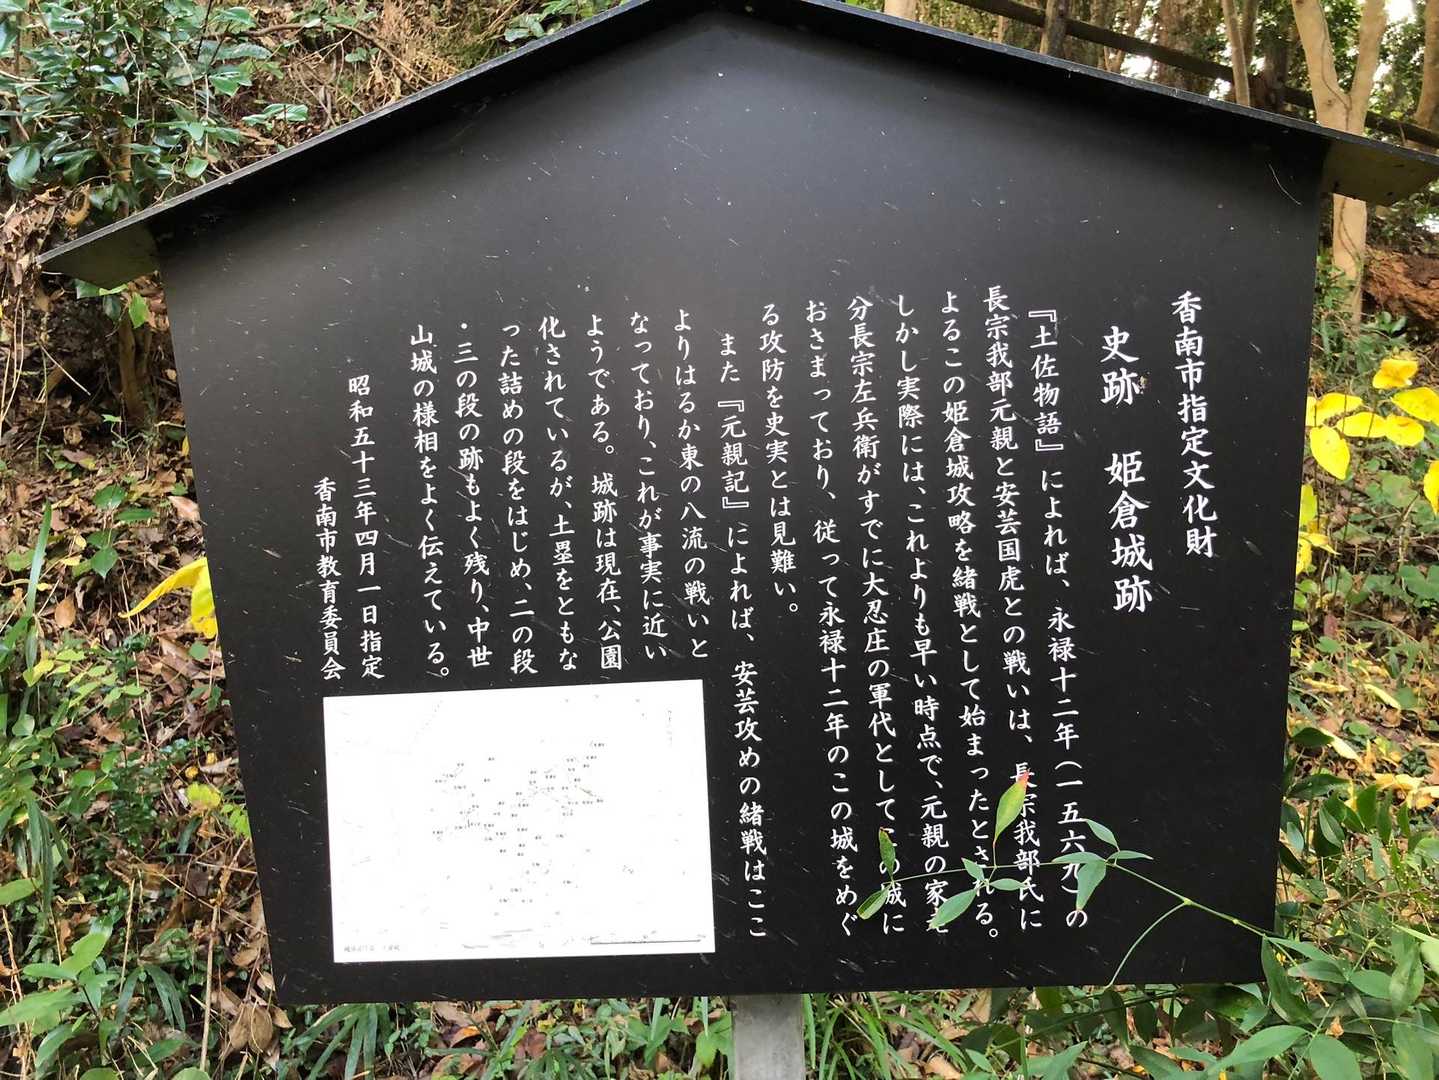 香南市指定文化財
史跡　姫倉城跡
『土佐物語』によれば、永禄十二年(一五六九)の
長宗我部元親と安芸国虎との戦いは、長宗我部氏に
よるこの姫倉城攻略を緒戦として始まったとされる。
しかし実際には、これよりも早い時点で、元親の家
分長宗左兵衛がすでに大忍庄の軍代として城に
おさまっており、従って永禄十二年のこの城をめぐ
る攻防を史実とは見難い。
また『元親記』によれば、安芸攻めの緒戦はここ
よりはるか東の八流の戦いと
なっており、これが事実に近い
ようである。城跡は現在、公園
化されているが、土塁をともな
った詰めの段をはじめ、二の段
・三の段の跡もよく残り、中世
山城の様相をよく伝えている。
昭和五十三年四月一日指定
香南市教育委員会